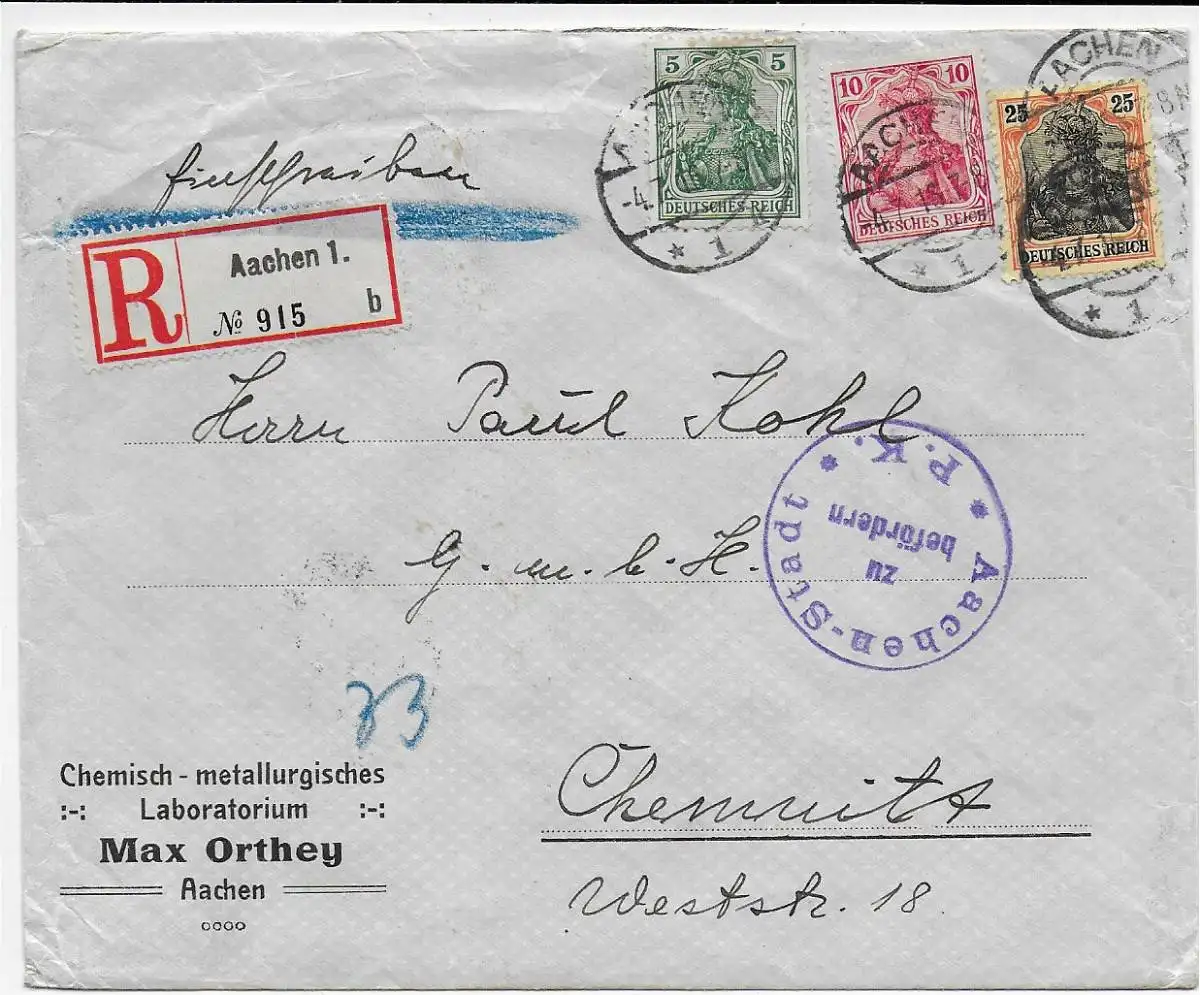 5 5
DEUTSCHES REICH
10 10
DEUTSCHES REICH
25 25
DEUTSCHES REICH
AACHEN
* 1
AACHEN
* 1
AACHEN
* 1
Einschreiben
R Aachen 1.
№ 915 b
Herrn Paul Kohl
G. m. b. H.
* Aachen-Stadt * P. K.
zu
befördern
Chemisch - metallurgisches
:-: Laboratorium :-:
Max Orthey
Aachen
Chemnitz
Weststr. 18.